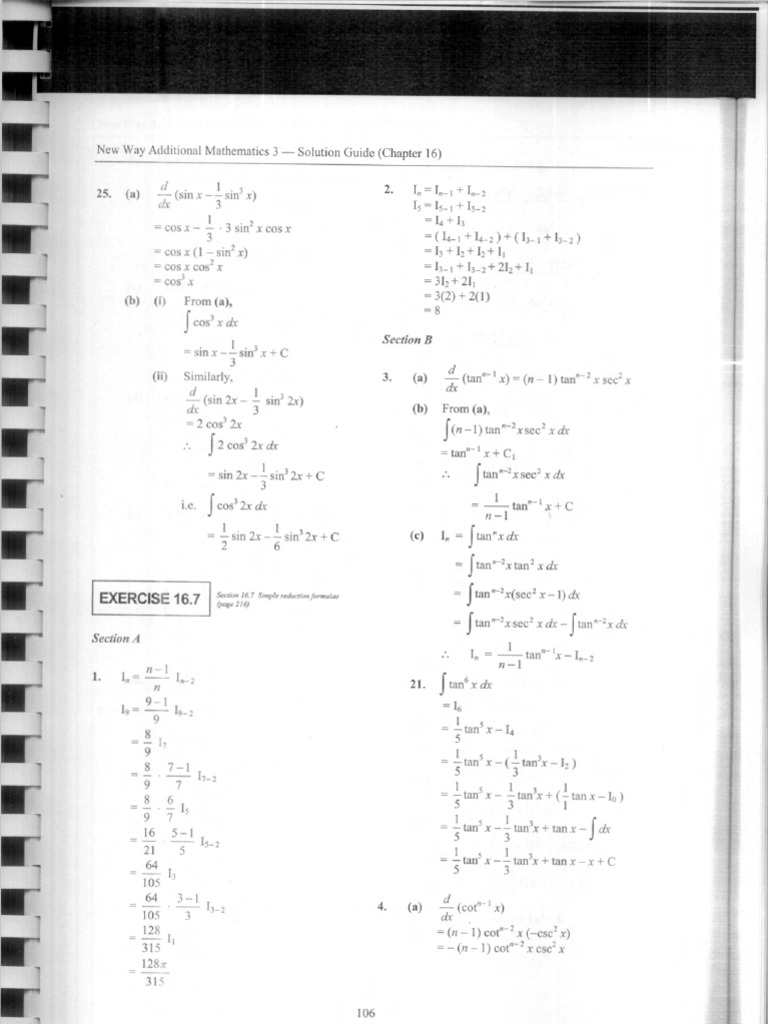 New Way Additional Mathematics 3 — Solution Guide (Chapter 16)
25. (a) d/dx (sin x – 1/3 sin³ x)
= cos x – 1/3 · 3 sin² x cos x
= cos x (1 – sin² x)
= cos x cos² x
= cos³ x
(b) (i) From (a),
∫ cos³ x dx
= sin x – 1/3 sin³ x + C
(ii) Similarly,
d/dx (sin 2x – 1/3 sin³ 2x)
= 2 cos³ 2x
∴ ∫ 2 cos³ 2x dx
= sin 2x – 1/3 sin³ 2x + C
i.e. ∫ cos³ 2x dx
= 1/2 sin 2x – 1/6 sin³ 2x + C
EXERCISE 16.7
Section 16.7 Simple reduction formulae
(page 216)
Section A
1. Iₙ = (n–1)/n Iₙ₋₂
I₉ = (9–1)/9 I₉₋₂
= 8/9 I₇
= 8/9 · (7–1)/7 I₇₋₂
= 8/9 · 6/7 I₅
= 16/21 · (5–1)/5 I₅₋₂
= 64/105 I₃
= 64/105 · (3–1)/3 I₃₋₂
= 128/315 I₁
= 128π/315
2. Iₙ = Iₙ₋₁ + Iₙ₋₂
I₅ = I₅₋₁ + I₅₋₂
= I₄ + I₃
= ( I₄₋₁ + I₄₋₂ ) + ( I₃₋₁ + I₃₋₂ )
= I₃ + I₂ + I₂ + I₁
= I₃₋₁ + I₃₋₂ + 2I₂ + I₁
= 3I₂ + 2I₁
= 3(2) + 2(1)
= 8
Section B
3. (a) d/dx (tanⁿ⁻¹ x) = (n – 1) tanⁿ⁻² x sec² x
(b) From (a),
∫ (n–1) tanⁿ⁻² x sec² x dx
= tanⁿ⁻¹ x + C₁
∴ ∫ tanⁿ⁻² x sec² x dx
= 1/(n–1) tanⁿ⁻¹ x + C
(c) Iₙ = ∫ tanⁿ x dx
= ∫ tanⁿ⁻² x tan² x dx
= ∫ tanⁿ⁻² x(sec² x – 1) dx
= ∫ tanⁿ⁻² x sec² x dx – ∫ tanⁿ⁻² x dx
∴ Iₙ = 1/(n–1) tanⁿ⁻¹ x – Iₙ₋₂
21. ∫ tan⁶ x dx
= I₆
= 1/5 tan⁵ x – I₄
= 1/5 tan⁵ x – ( 1/3 tan³x – I₂ )
= 1/5 tan⁵ x – 1/3 tan³x + ( 1/1 tan x – I₀ )
= 1/5 tan⁵ x – 1/3 tan³x + tan x – ∫ dx
= 1/5 tan⁵ x – 1/3 tan³x + tan x – x + C
4. (a) d/dx (cotⁿ⁻¹ x)
= (n – 1) cotⁿ⁻² x (–csc² x)
= – (n – 1) cotⁿ⁻² x csc² x
106